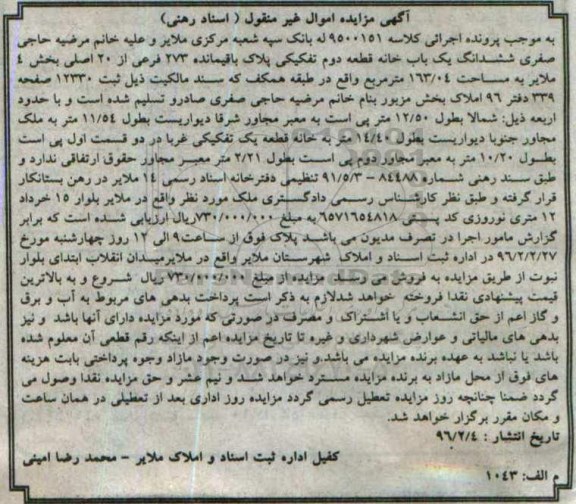 آگهی مزایده اموال غیر منقول ( اسناد رهنی)
به موجب پرونده اجرائی کلاسه ۹۵۰۰۱۵۱ له بانک سپه شعبه مرکزی ملایر و علیه خانم مرضیه حاجی
صفری ششدانگ یک باب خانه قطعه دوم تفکیکی پلاک باقیمانده ۲۷۳ فرعی از ۲۰ اصلی بخش ٤
ملایر به مساحت ۱۶۳/۰٤ مترمربع واقع در طبقه همکف که سند مالکیت ذیل ثبت ۱۲۳۳۰ صفحه
۳۳۹ دفتر ۹۶ املاک بخش مزبور بنام خانم مرضیه حاجی صفری صادرو تسلیم شده است و با حدود
اربعه ذیل: شمالا بطول ۱۲/۵۰ متر پی است به معبر مجاور شرقا دیواریست بطول ۱۱/۵٤ متر به ملک
مجاور جنوبا دیواریست بطول ۱٤/٤۰ متر به خانه قطعه یک تفکیکی غربا در دو قسمت اول پی است
بطول ۱۰/۲۰ متر به معبر مجاور دوم پی است بطول ۲/۲۱ متر معبر مجاور حقوق ارتفاقی ندارد و
طبق سند رهنی شماره ۸٤٤۸۸ – ۹۱/۵/۳ تنظیمی دفترخانه اسناد رسمی ۱٤ ملایر در رهن بستانکار
قرار گرفته و طبق نظر کارشناس رسمی دادگستری ملک مورد نظر واقع در ملایر بلوار ۱۵ خرداد
۱۲ متری نوروزی کد پستی ۶۵۷۱۶۵٤۸۱۸ به مبلغ ۷۳۰/۰۰۰/۰۰۰ریال ارزیابی شده است که برابر
گزارش مامور اجرا در تصرف مدیون می باشد پلاک فوق از ساعت۹ الی ۱۲ روز چهارشنبه مورخ
۹۶/۲/۲۷ در اداره ثبت اسناد و املاک شهرستان ملایر واقع در ملایرمیدان انقلاب ابتدای بلوار
نبوت از طریق مزایده به فروش می رسد. مزایده از مبلغ ۷۳۰/۰۰۰/۰۰۰ ریال شروع و به بالاترین
قیمت پیشنهادی نقدا فروخته خواهد شدلازم به ذکر است پرداخت بدهی های مربوط به آب و برق
و گاز اعم از حق انشعاب و یا اشتراک و مصرف در صورتی که مورد مزایده دارای آنها باشد و نیز
بدهی های مالیاتی و عوارض شهرداری و غیره تا تاریخ مزایده اعم از اینکه رقم قطعی آن معلوم شده
باشد یا نباشد به عهده برنده مزایده می باشد.و نیز در صورت وجود مازاد وجوه پرداختی بابت هزینه
های فوق از محل مازاد به برنده مزایده مسترد خواهد شد و نیم عشر و حق مزایده نقدا وصول می
گردد ضمنا چنانچه روز مزایده تعطیل رسمی گردد مزایده روز اداری بعد از تعطیلی در همان ساعت
و مکان مقرر برگزار خواهد شد.
تاریخ انتشار : ۹۶/۲/٤
کفیل اداره ثبت اسناد و املاک ملایر – محمد رضا امینی
م الف: ۱۰٤۳